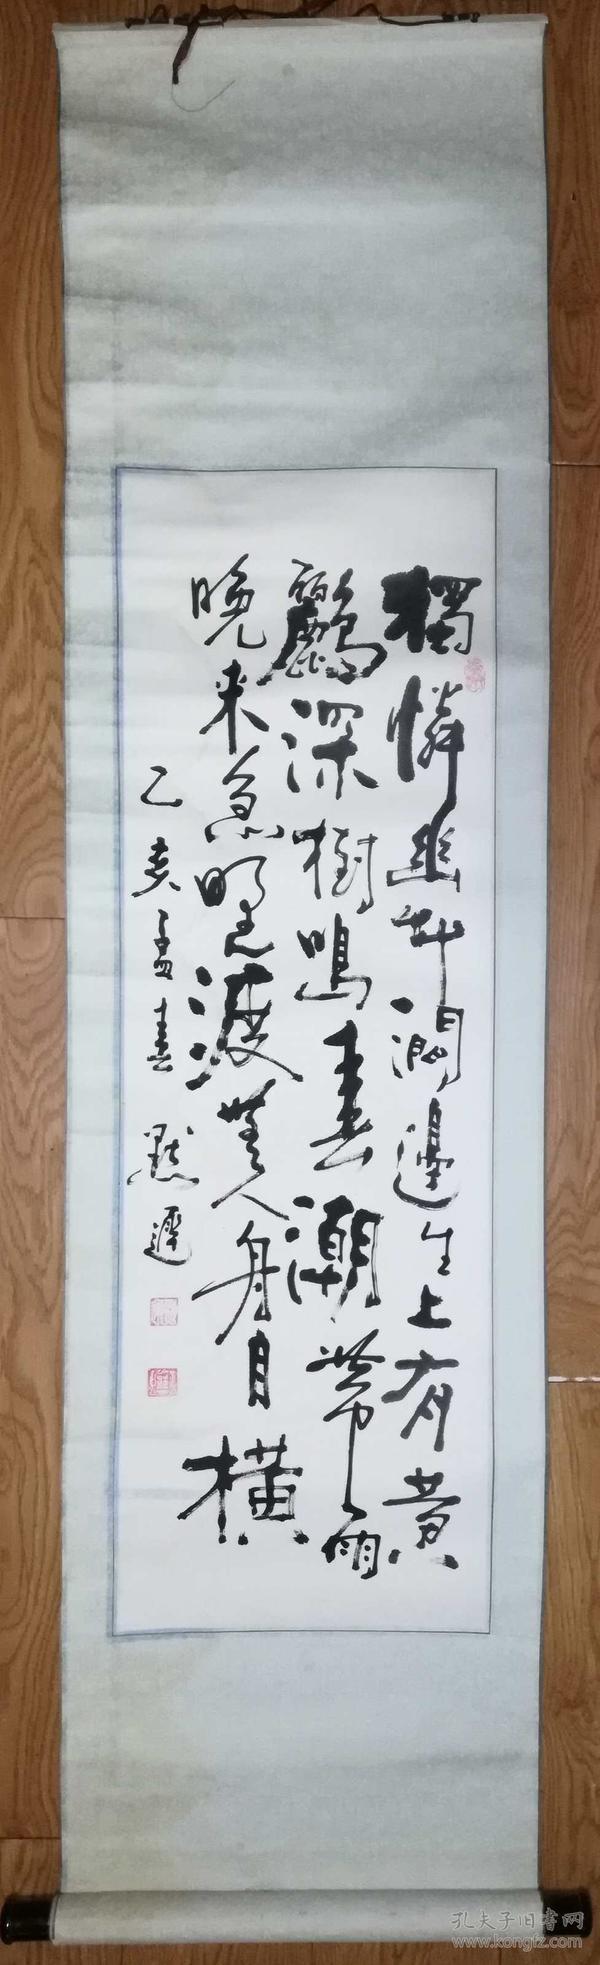 獨憐幽草澗邊生上有黄
鸝深樹鳴春潮帶雨
晚来急野渡無人舟自橫
乙亥孟春 默遲
孔夫子旧书网
www.kongfz.com